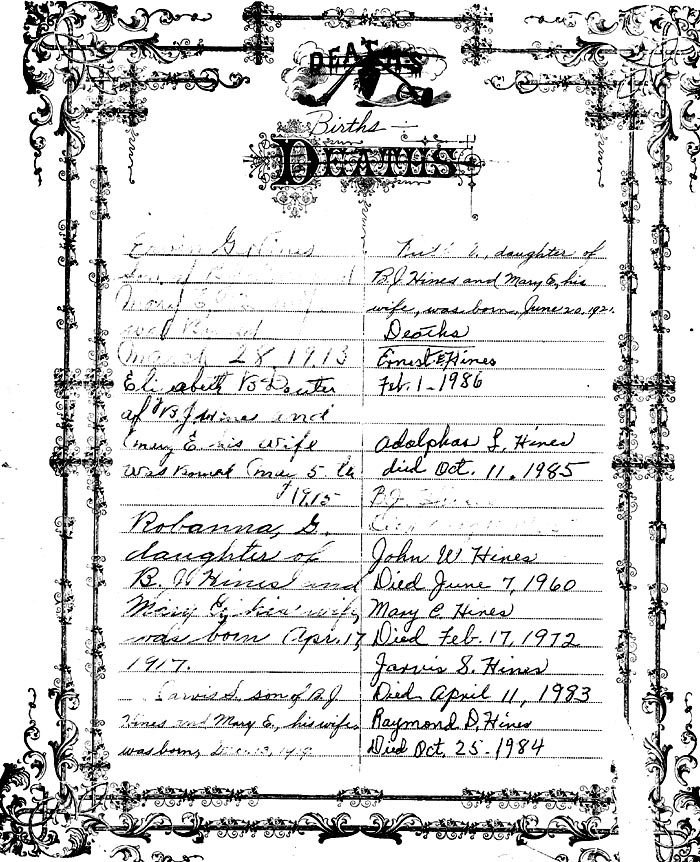 DEATHS
Births
DEATHS
G Hines
Son of
Mary E
was
March 28 1913
Elizabeth B
of B J Hines and
Mary E. his wife
was May 5
1915
Robanna, G.
daughter of
B. J. Hines and
Mary E, his wife,
was born Apr. 17,
1917.
Jarvis S, son of B J
Hines and Mary E., his wife,
was born,
daughter of
B. J Hines and Mary E, his
wife, was born, June 20, 1921.
Deaths
Ernest E Hines
Feb. 1 - 1986
Adolphas L. Hines
died Oct. 11. 1985
B. J.
John W Hines
Died June 7, 1960
Mary E. Hines
Died Feb. 17, 1972
Jarvis S. Hines
Died April 11, 1983
Raymond D, Hines
Died Oct. 25 - 1984